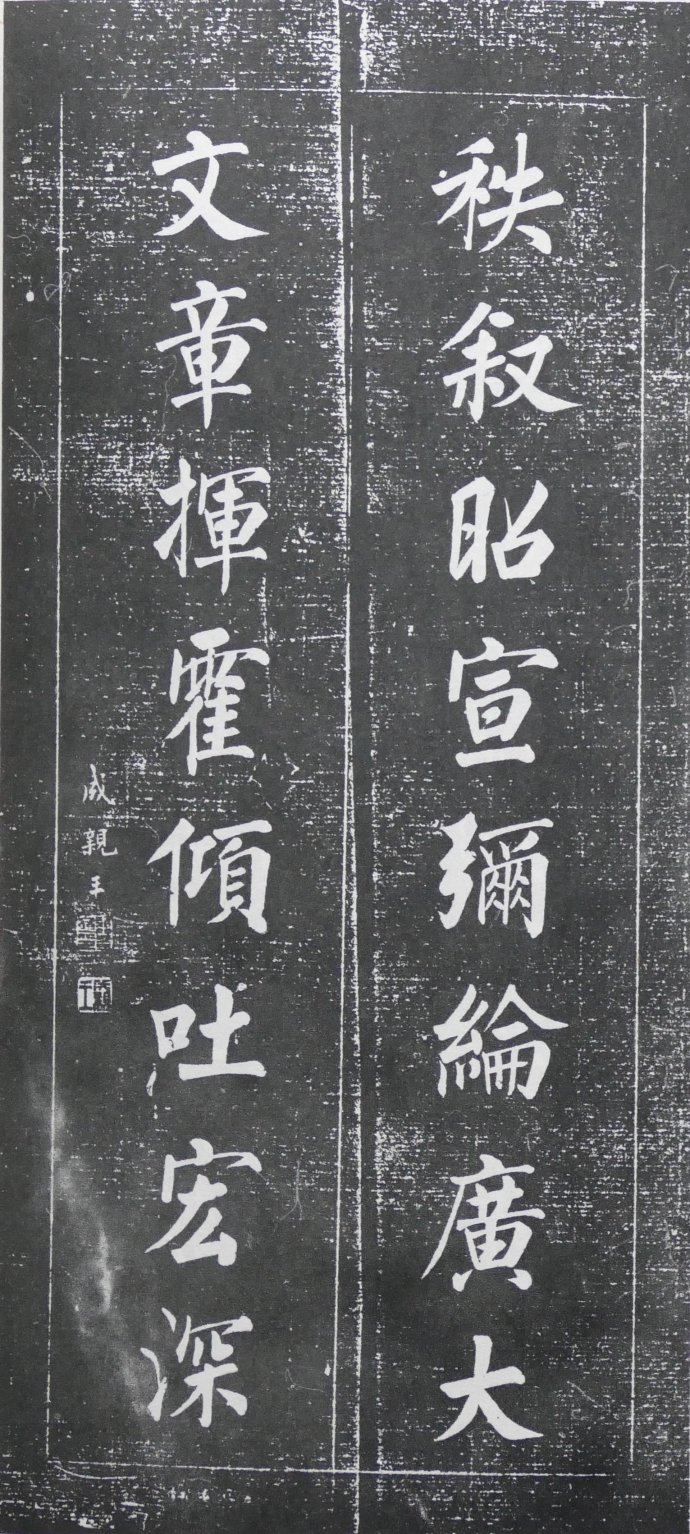 秩叙昭宣彌綸廣大
文章揮霍傾吐宏深
成親王